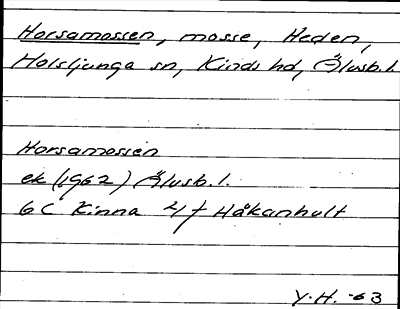 Horsamossen, mosse, Heden,
Holsljunga sn, Kinds hd, Älvsb. l.
Horsamossen
ek (1962) Älvsb. l.
6 C Kinna 4 f Håkanhult
Y. H. -63